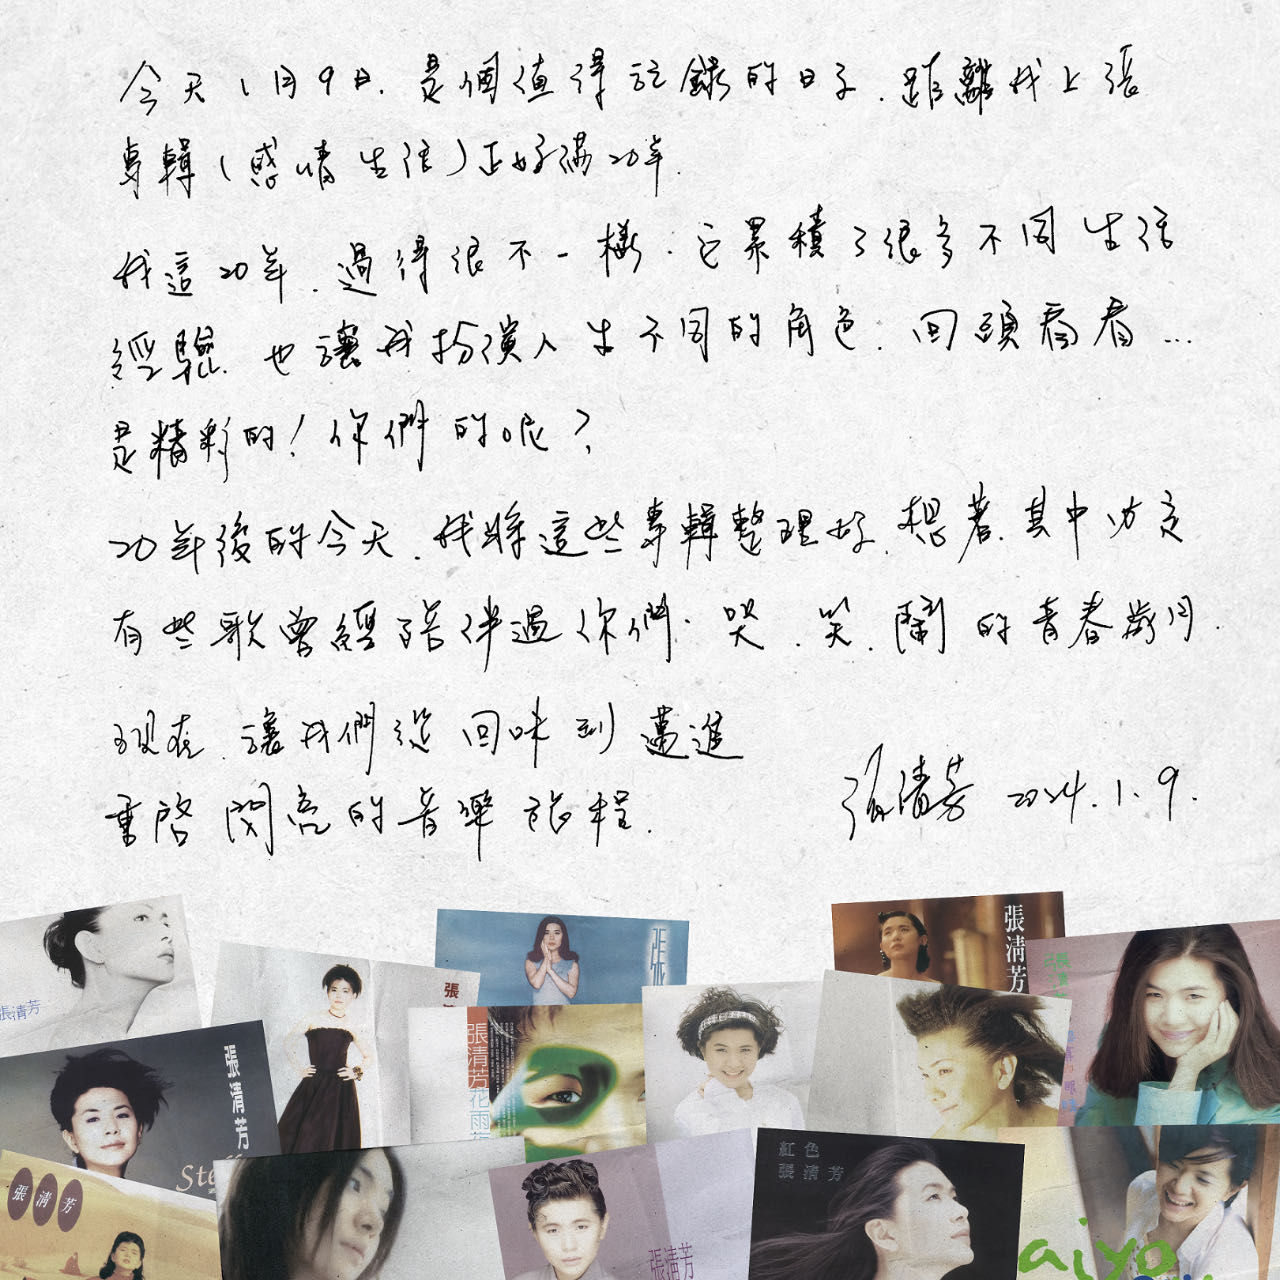 今天1月9日.是個值得記錄的日子.距離我上張
專輯(感情生活)正好滿20年.
我這20年.過得很不一樣.它累積了很多不同生活
經驗.也讓我扮演人生不同的角色.回頭看看...
是精彩的!你們的呢?
20年後的今天.我將這些專輯整理好.想著.其中肯定
有些歌曾經陪伴過你們.哭.笑.鬧的青春歲月.
現在.讓我們從回味到邁進
重啓閃亮的音樂旅程.
張清芳 2024.1.9.
張清芳
張清芳
張
張清芳
張清芳
張清芳
花雨
張清芳
紅色
張清芳
張清芳
aiyo